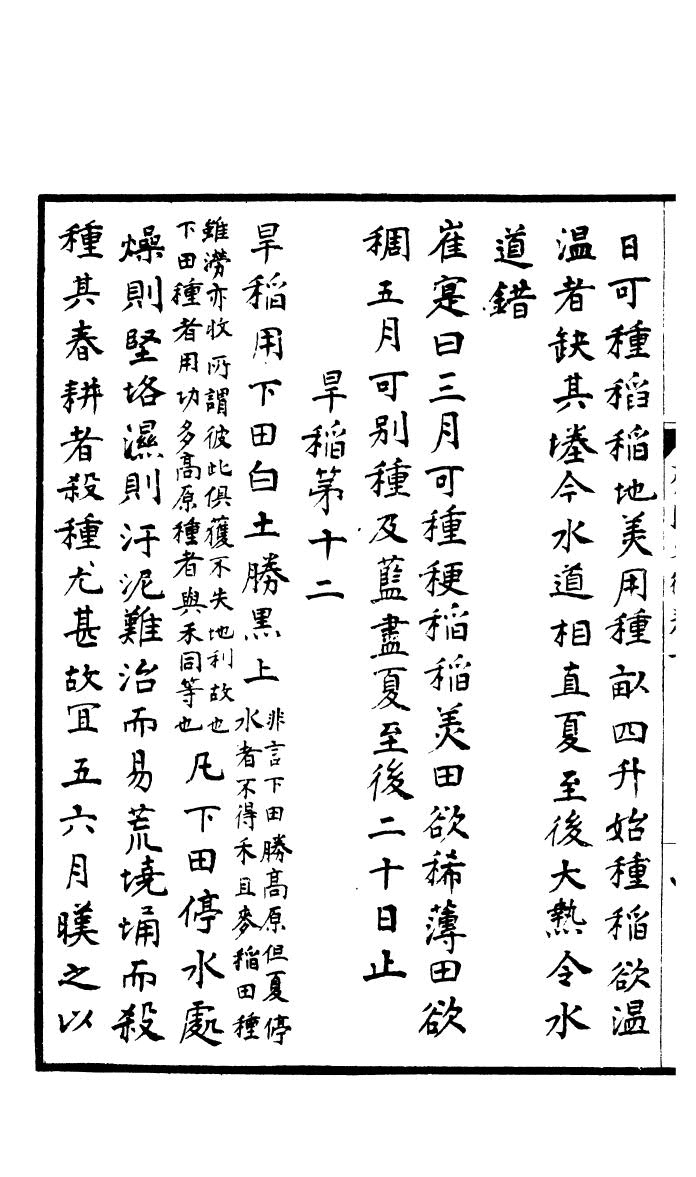 日可種稻稻地美用種畝四升始種稻欲温
温者缺其塍令水道相直夏至後大熱令水
道錯
崔寔曰三月可種稉稻稻美田欲稀薄田欲
稠五月可别種及藍盡夏至後二十日止
旱稻第十二
旱稻用下田白土勝黑土
非言下田勝高原但夏停
水者不得禾豆麥稻田種
雖澇亦收所謂彼此俱獲不失地利故也
下田種者用功多高原種者與禾同等也
凡下田停水處
燥則堅垎濕則汙泥難治而易荒墝埆而殺
種其春耕者殺種尤甚故冝五六月暵之以